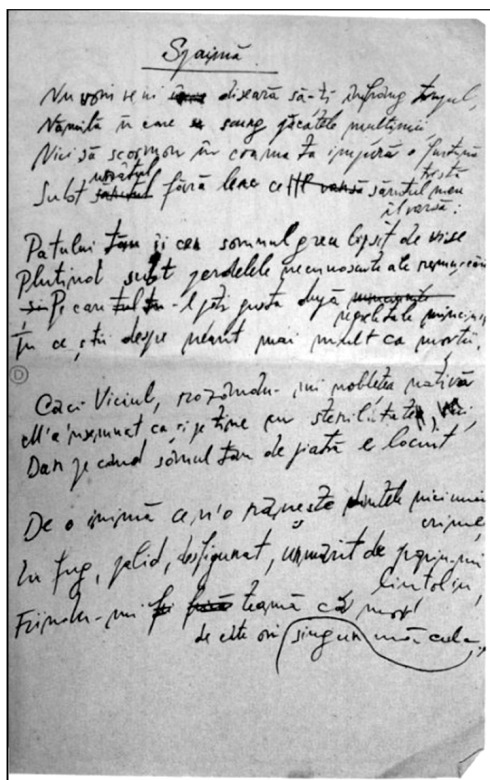 Spaimă
Nu voiu veni diseară să-ți înfrâng trupul,
Năpută în care se scurg păcatele mulțimii,
Nici să scormon în coama ta impură o furtună
tristă
Subt urâtul fără leac ce sărutul meu
îl varsă:
Patului tău îi cer somnul greu lipsit de vise
Plutind subt perdelele necunoscute ale remușcării
Pe care tu -l poți gusta după
negrele minciuni,
Tu ce știi despre neant mai mult ca morții.
D
Căci Viciul, rozându-mi noblețea nativă
M'a însemnat ca și pe tine cu sterilitatea lui,
Dar pe când sânul tău de piatră e locuit
De o inimă ce n'o rănește dintele niciunei
crime,
Eu fug, palid, desfigurat, urmărit de propriu-mi
lințoliu,
Fiindu-mi teamă că mor
de câte ori singur mă culc.